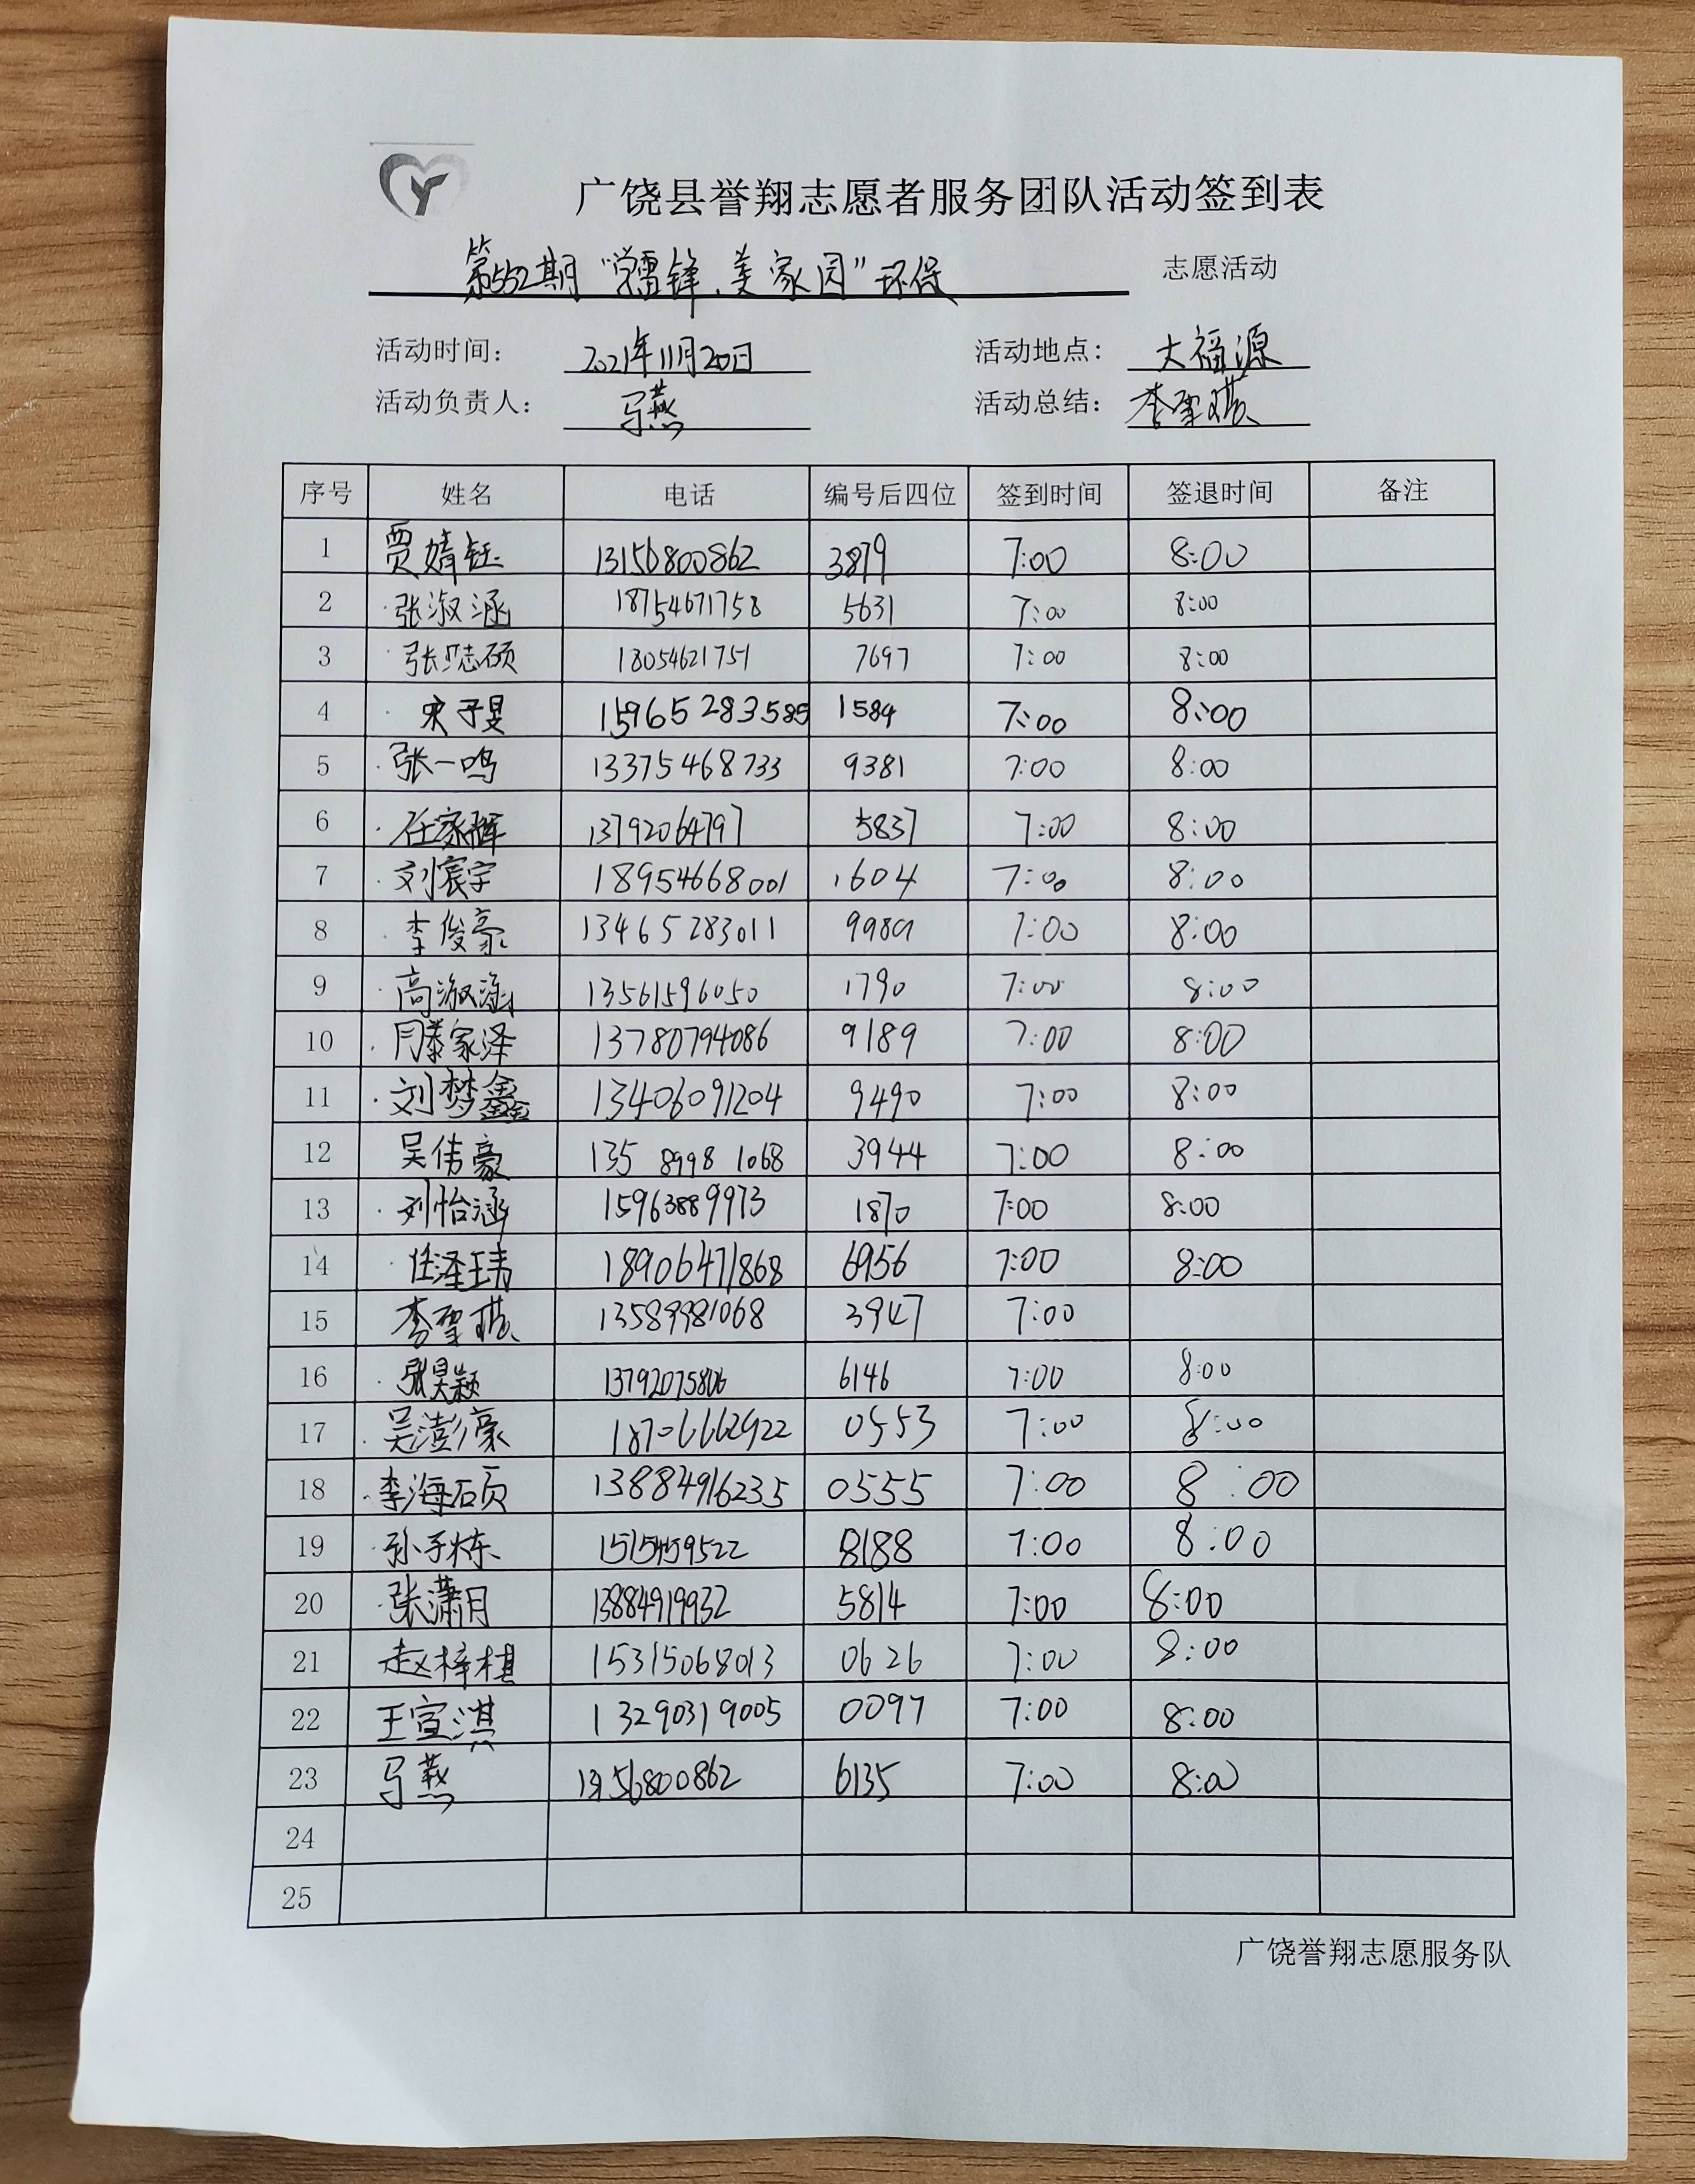 广饶县誉翔志愿者服务团队活动签到表
第552期“学雷锋、美家园”环保 志愿活动
活动时间: 2021年11月20日 活动地点: 大福源
活动负责人: 马燕 活动总结: 李翠祺
序号 姓名 电话 编号后四位 签到时间 签退时间 备注
1 贾婧钰 13156800862 3879 7:00 8:00
2 张淑涵 18754671758 5631 7:00 8:00
3 张皓硕 18054621751 7697 7:00 8:00
4 宋子昱 15965283585 1584 7:00 8:00
5 张一鸣 13375468733 9381 7:00 8:00
6 任家辉 13792064797 5837 7:00 8:00
7 刘宸宇 18954668001 1604 7:00 8:00
8 李俊豪 13465283011 9989 7:00 8:00
9 高淑涵 13561596050 1790 7:00 8:00
10 家泽 13780794086 9189 7:00 8:00
11 刘梦鑫 13406091204 9490 7:00 8:00
12 吴倩豪 135 8998 1068 3944 7:00 8:00
13 刘怡涵 15963889973 1870 7:00 8:00
14 任泽玮 18906471868 6956 7:00 8:00
15 李翠祺 13589981068 3947 7:00
16 张昊颖 13792075806 6146 7:00 8:00
17 吴澎豪 18706662922 0553 7:00 8:00
18 李海硕 13884916235 0555 7:00 8:00
19 孙子栋 15154959522 8188 7:00 8:00
20 张潇月 13884919932 5814 7:00 8:00
21 赵梓棋 15315068013 0626 7:00 8:00
22 王宣淇 13290319005 0097 7:00 8:00
23 马燕 13156800862 6135 7:00 8:00
24
25
广饶誉翔志愿服务队